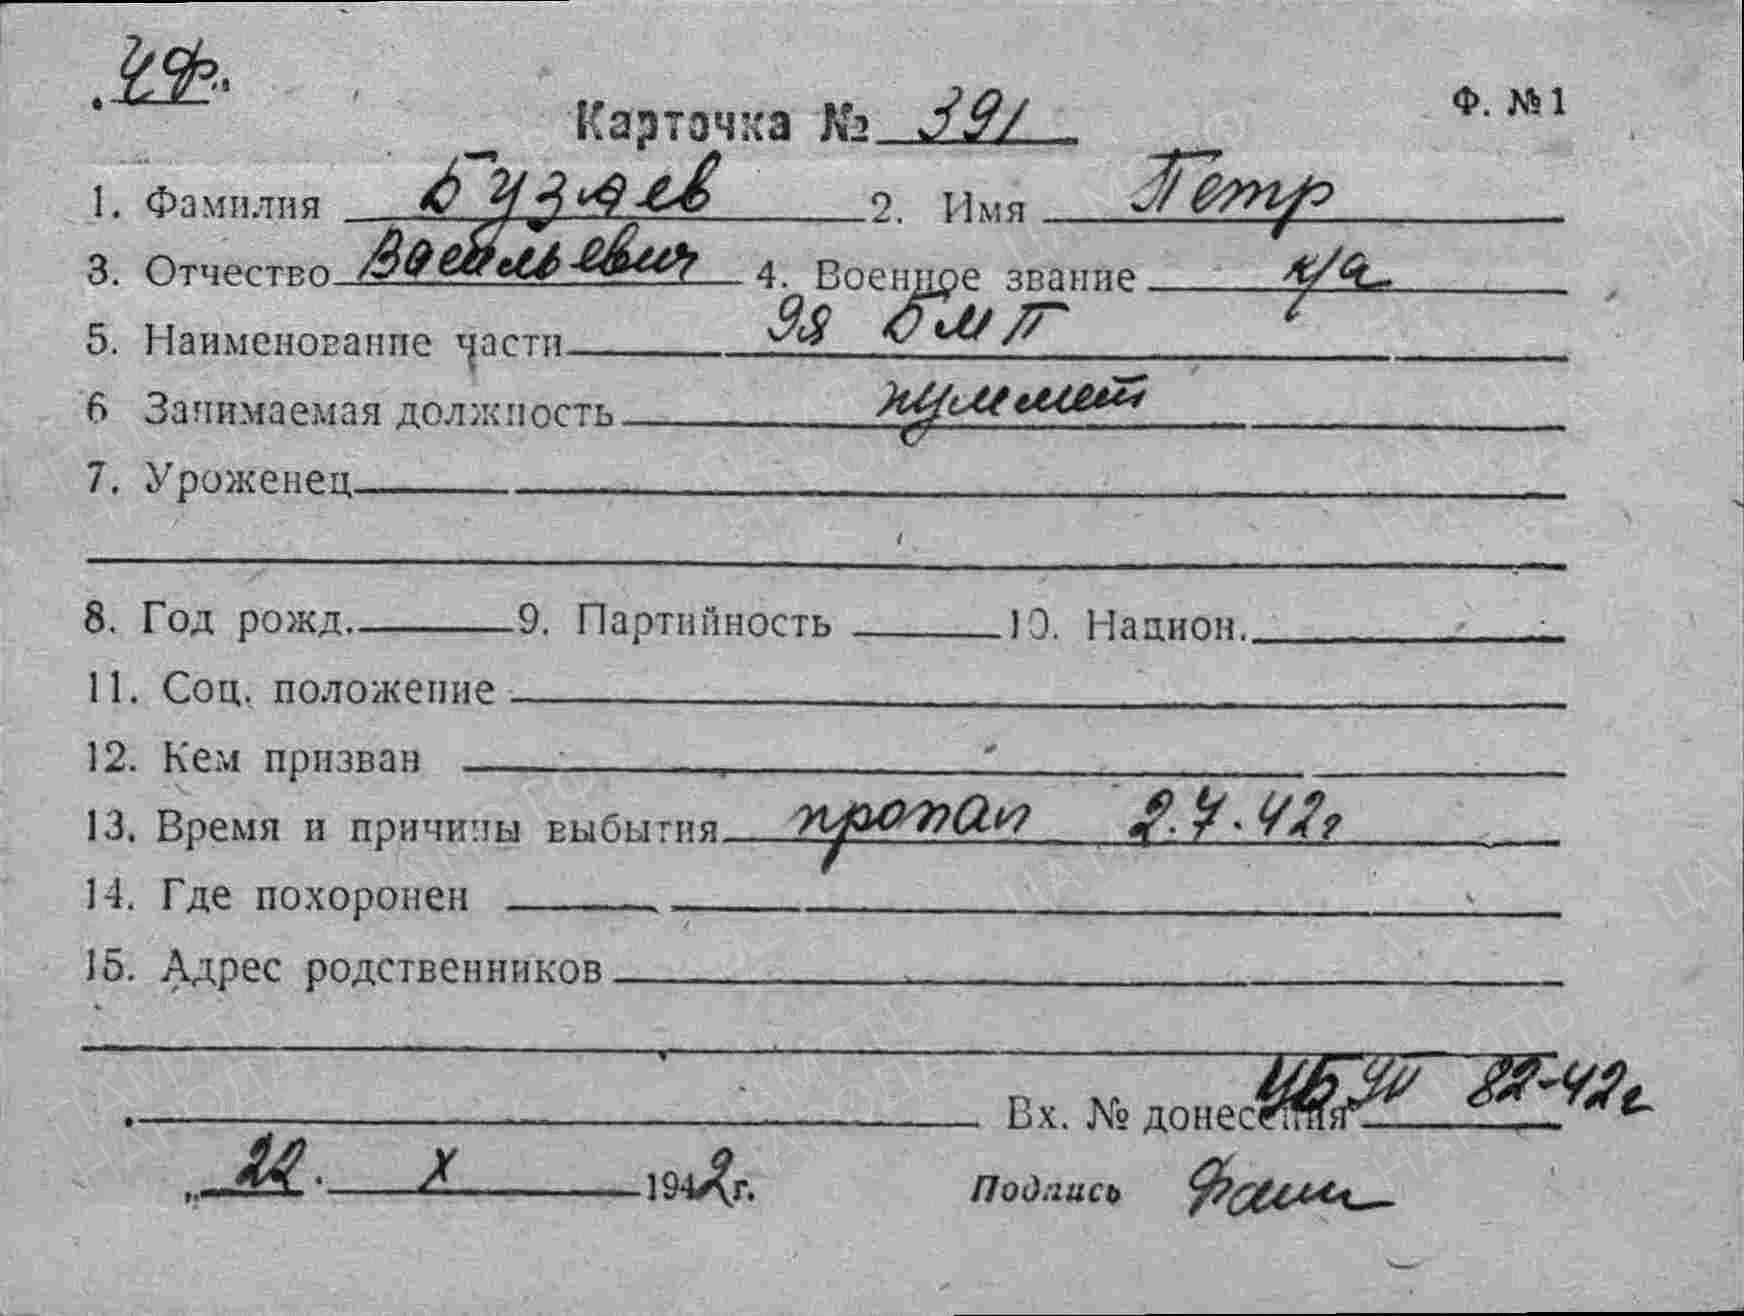 ЧФ.
Карточка № 391
Ф. № 1
1. Фамилия Бузяев 2. Имя Петр
3. Отчество Васильевич 4. Военное звание к/а
5. Наименование части 9я БМП
6 Занимаемая должность
7. Уроженец
8. Год рожд. 9. Партийность 10. Национ.
11. Соц. положение
12. Кем призван
13. Время и причины выбытия пропал 2.7.42г
14. Где похоронен
15. Адрес родственников
Вх. № донесения 82-42г
„22. X 1942г.
Подпись